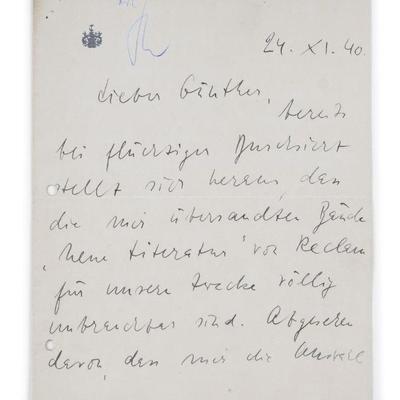 24. XI. 40.
Lieber Günther,
bereits
bei flüchtiger Durchsicht
stellt sich heraus, dass
die mir übersandten Bände
"Neue Literatur" von Reclam
für unsere Zwecke völlig
unbrauchbar sind. Abgesehen
davon, dass mir die Auswahl